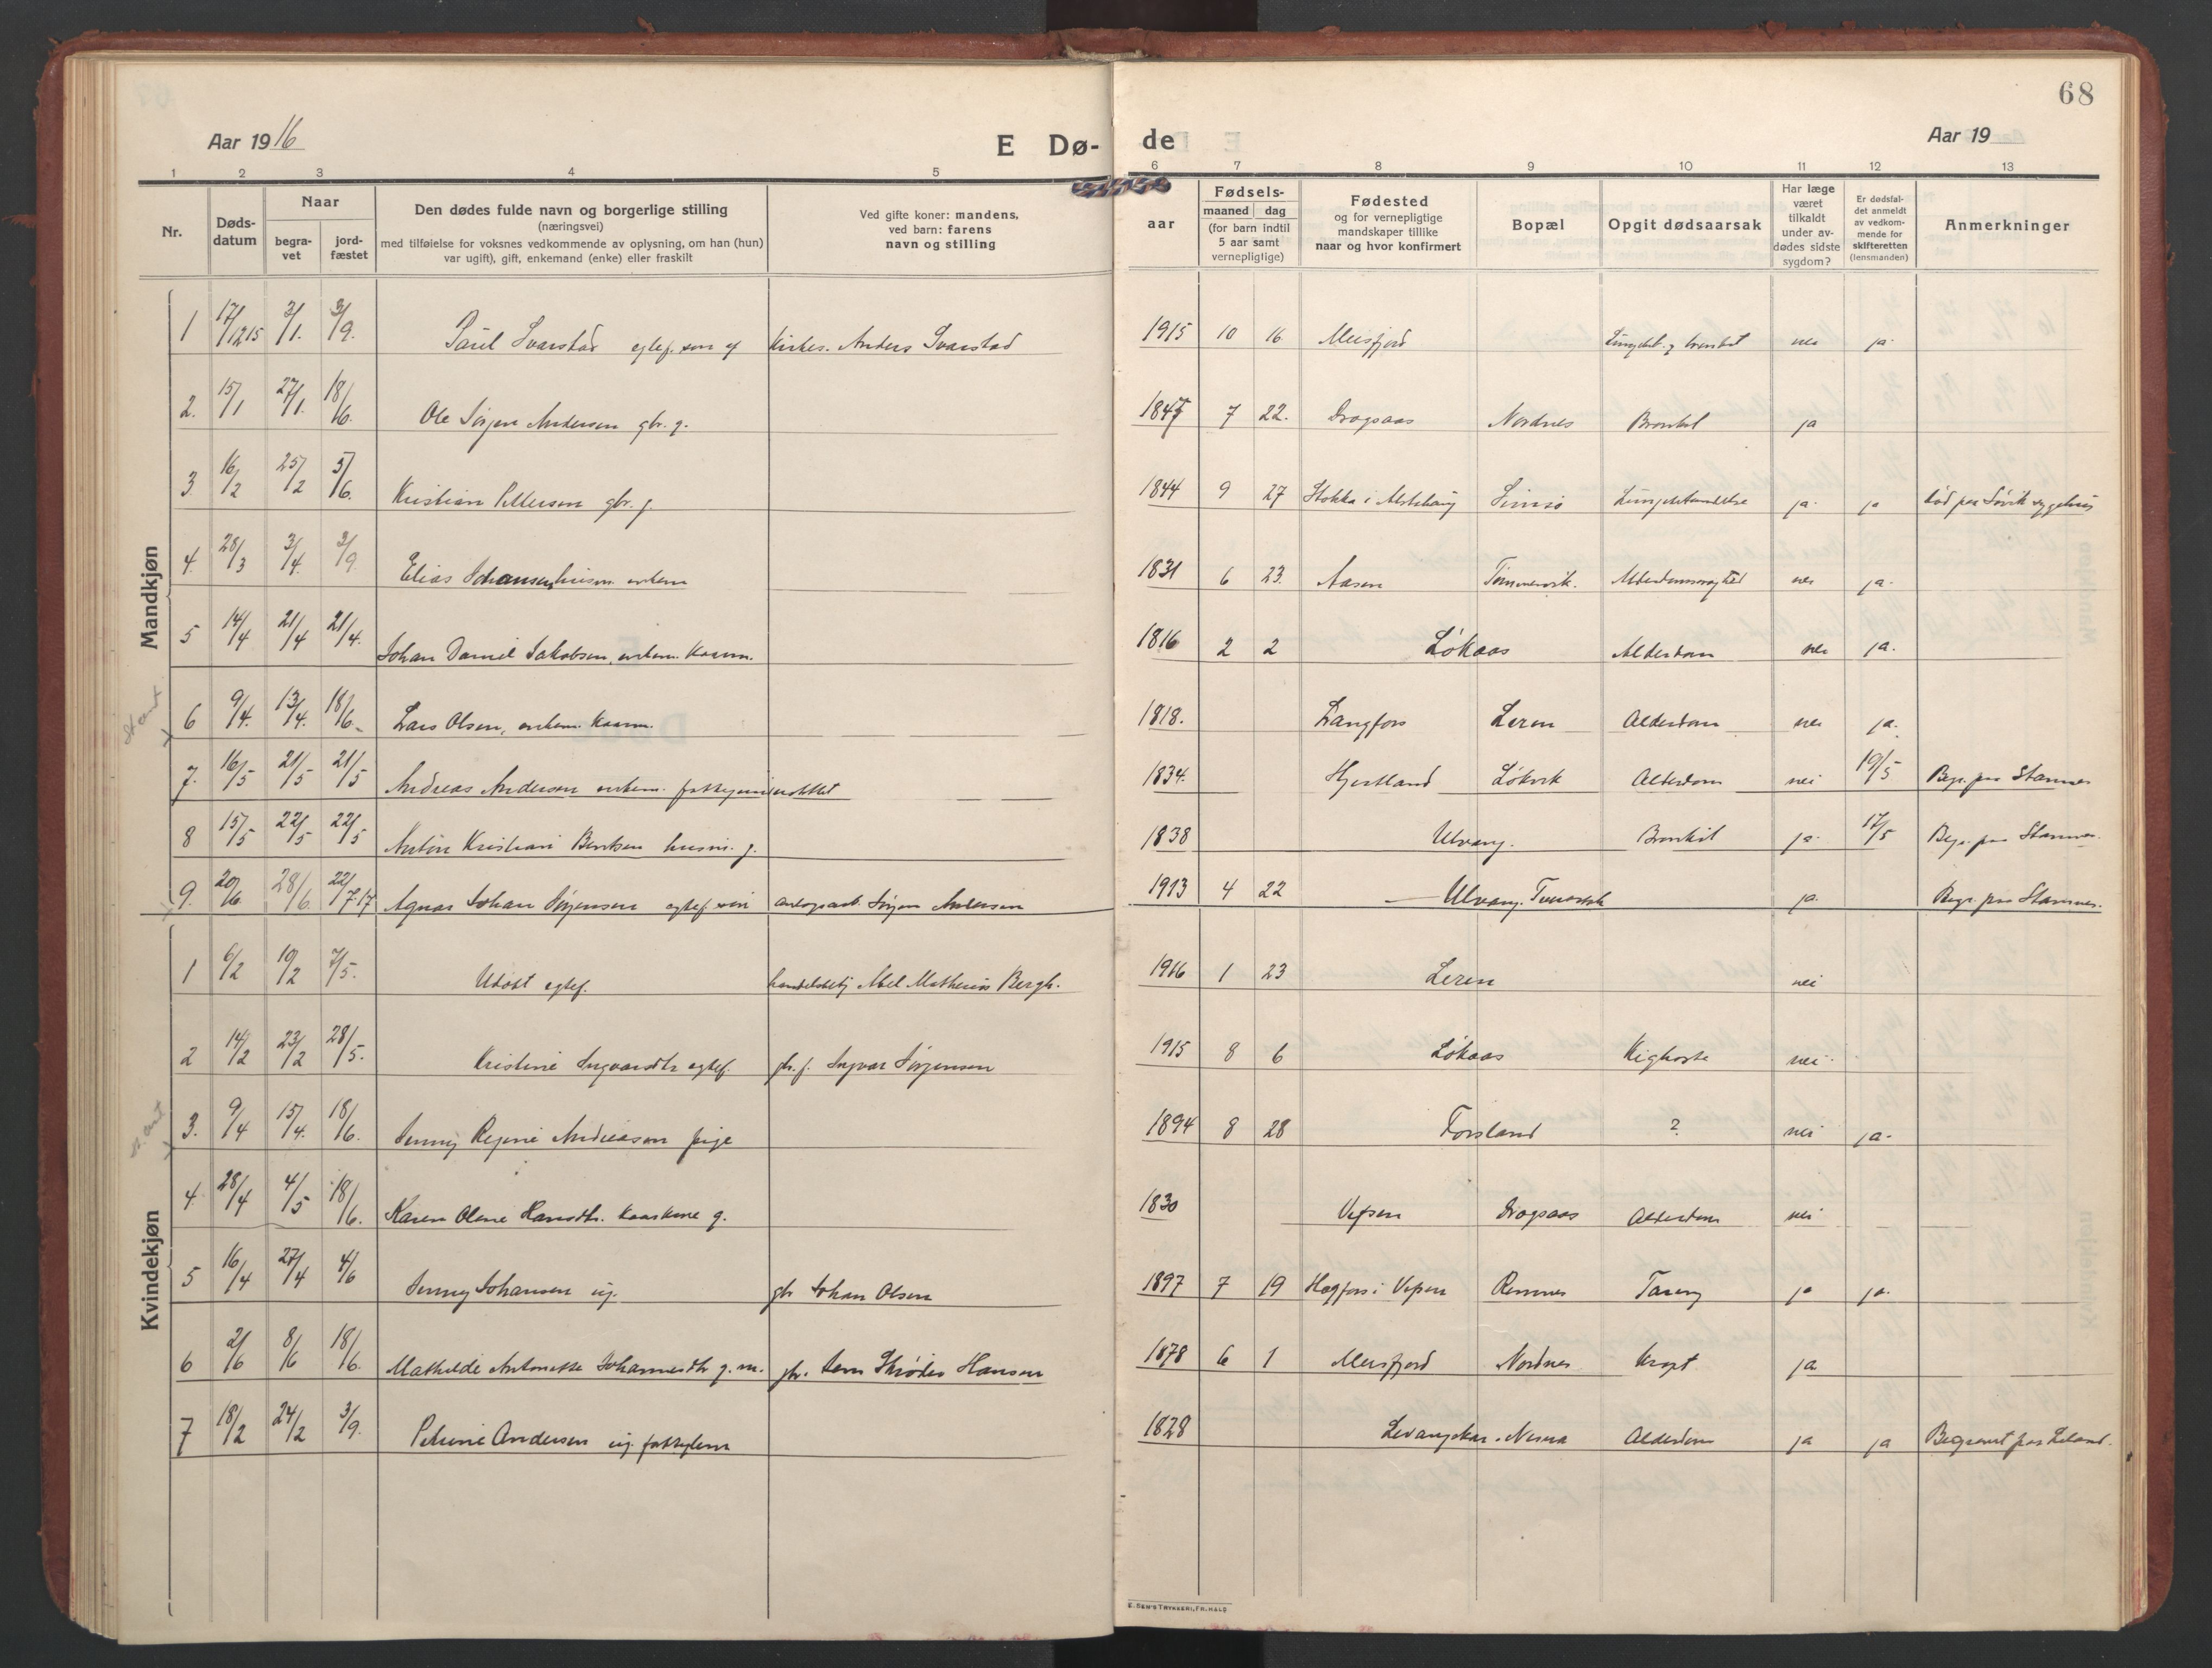 68
Aar 1916
E Dø-
de
Aar 19
1 2 3 4 5 6 7 8 9 10 11 12 13
Nr.
Døds-
datum
Naar
begra-
vet
jord-
fæstet
Den dødes fulde navn og borgerlige stilling
(næringsvei)
med tilføielse for voksnes vedkommende av oplysning, om han (hun)
var ugift), gift, enkemand (enke) eller fraskilt
Ved gifte koner: mandens,
ved barn: farens
navn og stilling
aar
Fødsels-
maaned dag
(for barn indtil
5 aar samt
vernepligtige)
Fødested
og for vernepligtige
mandskaper tillike
naar og hvor konfirmert
Bopæl
Opgit dødsaarsak
Har læge
været
tilkaldt
under av-
dødes sidste
sygdom?
Er dødsfal-
det anmeldt
av vedkom-
mende for
skifteretten
(lensmanden)
Anmerkninger
Mandkjøn
1 17/12 15 3/1. 3/9. Paul Svarstad egtef. søn af Kirkes. Anders Svarstad 1915 10 16 Meisfjord nei ja.
2. 15/1 27/1. 18/6. Ole Jørgen Andersen gbr. g. 1847 7 22. Dragsaas Nordnes Bronkit ja
3. 16/2 25/2 5/6. Kristian Pettersen gbr. g. 1844 9 27 Stokka i Alstahaug Lungebetændelse ja. ja død paa Søvik sygehus
4. 28/3 3/4. 3/9. Elias Johansen husm. enkem 1831 6 23. Aasen Tømmervik. nei ja.
5 14/4 21/4 21/4. Johan Daniel Jakobsen, enkem. kaarm. 1816 2 2 Løkaas Alderdom nei ja.
6 9/4. 13/4. 18/6. Lars Olsen, enkem. kaarm. 1818. Langfors Leren Alderdom nei ja.
7. 16/5 21/5 21/5 Andreas Andersen enkem. 1834. Hjertland Løkvik Alderdom nei 19/5 Begr. paa Stamnes
8 15/5 22/5 22/5 Anton Kristian Bentsen husm. g. 1838 Ulvang. Bronkit ja. 17/5 Begr. paa Stamnes.
9. 20/6. 28/6. 22/7.17 Agnar Johan Jørgensen egtef. søn Jørgen Andersen 1913 4 22 Ulvang. ja. Begr. paa Stamnes.
Kvindekjøn
1 6/2 19/2 7/5. Udøbt egtef. handelsbetj Abel Mathæus Bergh. 1916 1 23 Leren nei
2 14/2 23/2 28/5. Kristine Ingvardtr egtef. gbr. f. Ingvar Jørgensen 1915 8 6 Løkaas Kighoste nei.
3. 9/4 15/4. 18/6. Jenny Regine Andreasen pige 1894 8 28 Forsland ? nei ja.
4. 28/4 4/5 18/6. Karen Oline Hansdtr. kaarkone g. 1830 Vefsen Dragsaas Alderdom nei
5 16/4 27/4 4/6 Jenny Johansen ug. gbr Johan Olsen 1897 7 19 Hagfors i Vefsen Remnes Tæring ja ja.
6 2/6 8/6 18/6. Mathilde Antonette Johannesdtr g. m. gbr. Jens Skrøder Hansen 1878 6 1 Meisfjord Nordnes Kræft ja
7 18/2 24/2 3/9. Petrine Andersen ug. fattiglem 1828 Nesna Alderdom ja ja Begravet paa Leland.
E. SEM'S TRYKKERI, FR.HALD